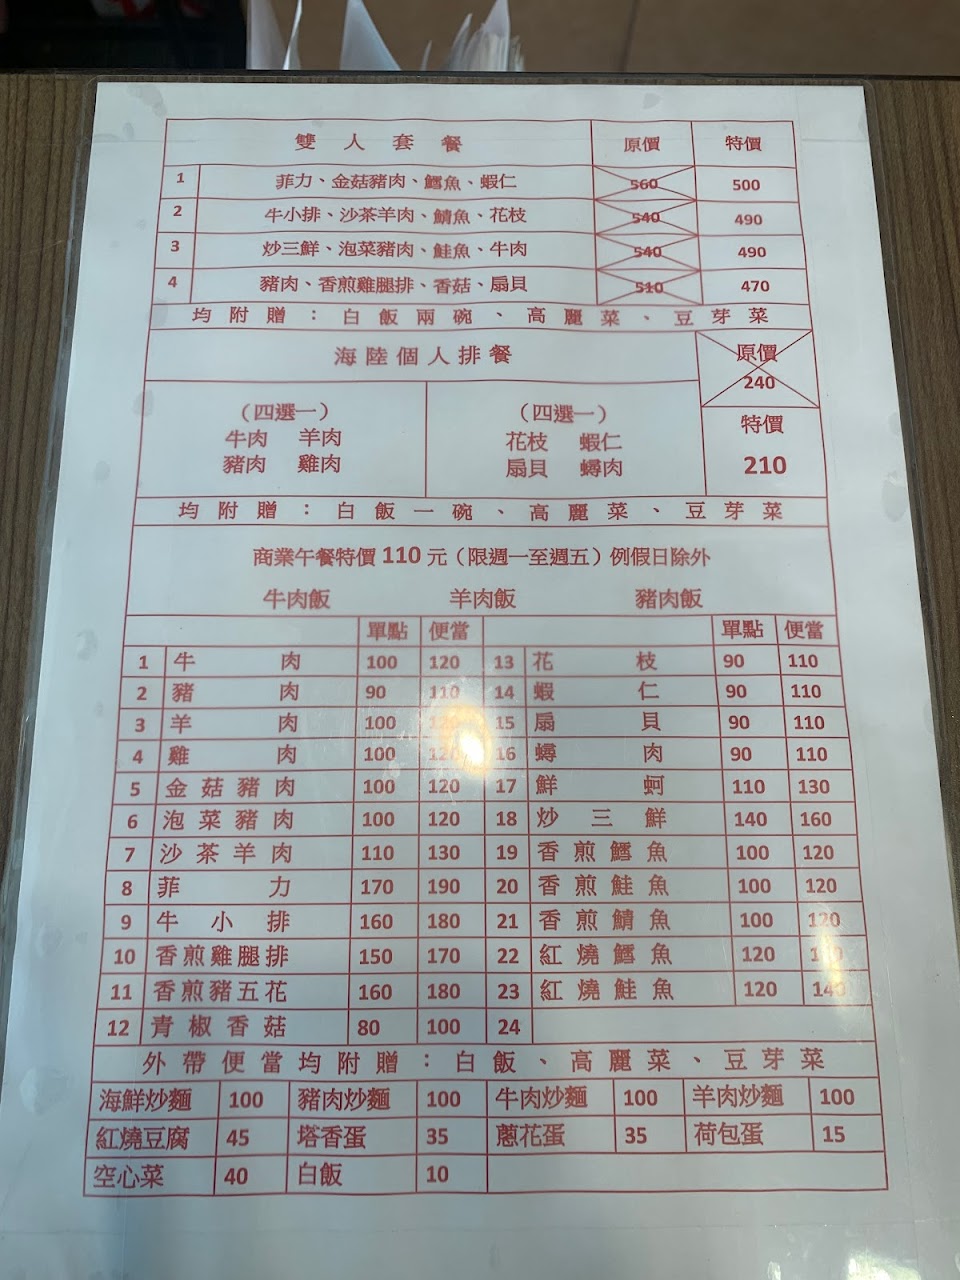 雙人套餐 原價 特價
1 菲力、金菇豬肉、鱈魚、蝦仁 560 500
2 牛小排、沙茶羊肉、鯖魚、花枝 540 490
3 炒三鮮、泡菜豬肉、鮭魚、牛肉 540 490
4 豬肉、香煎雞腿排、香菇、扇貝 510 470
均附贈：白飯兩碗、高麗菜、豆芽菜
海陸個人排餐 原價 240
特價 210
（四選一） （四選一）
牛肉 羊肉 花枝 蝦仁
豬肉 雞肉 扇貝 蟳肉
均附贈：白飯一碗、高麗菜、豆芽菜
商業午餐特價 110 元（限週一至週五）例假日除外
牛肉飯 羊肉飯 豬肉飯
單點 便當 單點 便當
1 牛肉 100 120 13 花枝 90 110
2 豬肉 90 110 14 蝦仁 90 110
3 羊肉 100 15 扇貝 90 110
4 雞肉 100 16 蟳肉 90 110
5 金菇豬肉 100 120 17 鮮蚵 110 130
6 泡菜豬肉 100 120 18 炒三鮮 140 160
7 沙茶羊肉 110 130 19 香煎鱈魚 100 120
8 菲力 170 190 20 香煎鮭魚 100 120
9 牛小排 160 180 21 香煎鯖魚 100 120
10 香煎雞腿排 150 170 22 紅燒鱈魚 120
11 香煎豬五花 160 180 23 紅燒鮭魚 120 140
12 青椒香菇 80 100 24
外帶便當均附贈：白飯、高麗菜、豆芽菜
海鮮炒麵 100 豬肉炒麵 100 牛肉炒麵 100 羊肉炒麵 100
紅燒豆腐 45 塔香蛋 35 蔥花蛋 35 荷包蛋 15
空心菜 40 白飯 10